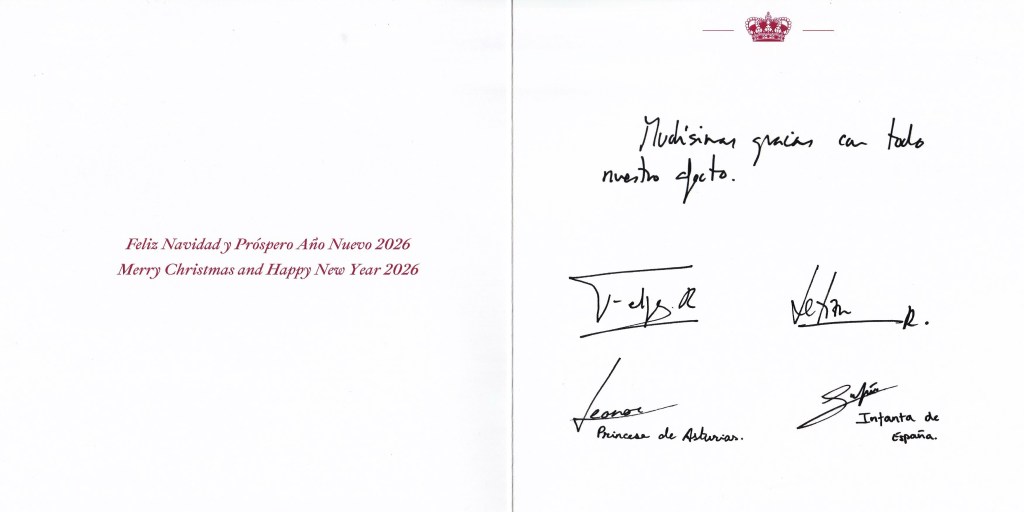 Feliz Navidad y Próspero Año Nuevo 2026
Merry Christmas and Happy New Year 2026
Muchísimas gracias con todo
nuestro afecto.
Felipe R
Letizia R.
Leonor
Princesa de Asturias.
Sofía
Infanta de
España.